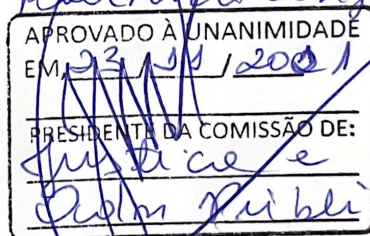 APROVADO À UNANIMIDADE
EM, 23 / 11 / 2021
PRESIDENTE DA COMISSÃO DE:
Justiça e